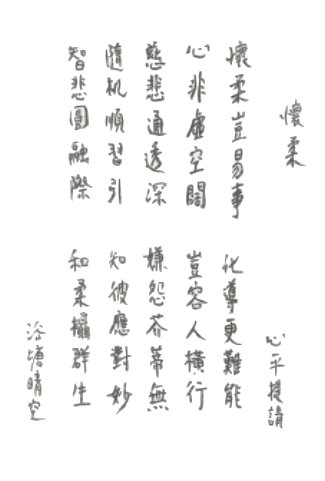 懷柔
懷柔豈易事
心非虛空闊
慈悲通透深
隨机順習引
智悲圓融際
心平提請
化導更難能
豈容人橫行
嫌怨芥蒂無
知彼應對妙
和柔攝群生
浴塘晴空